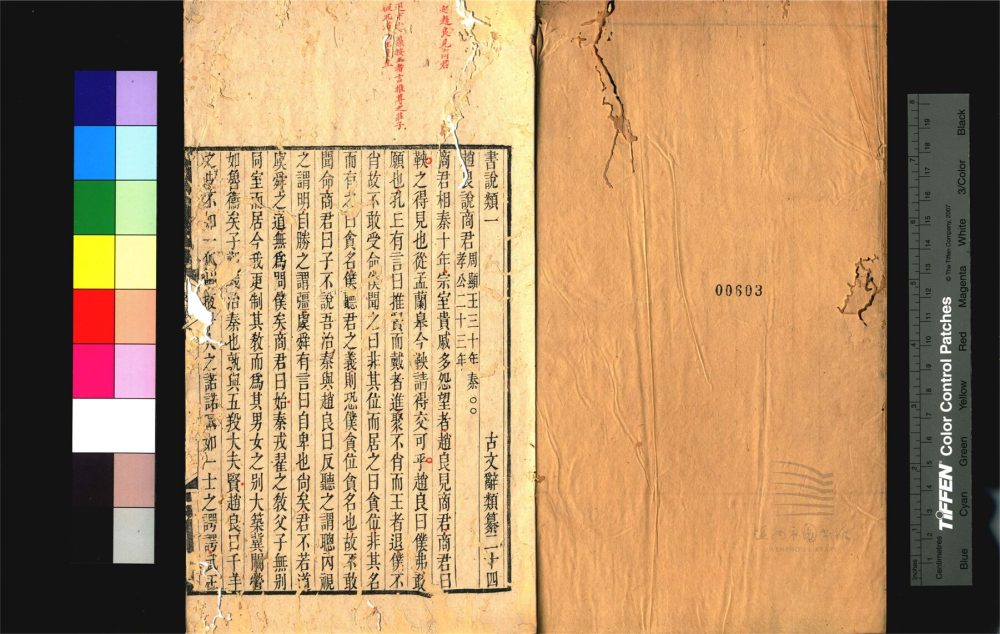 書說類一　古文辭類纂二十四
趙良說商君 周顯王三十年 秦孝公二十三年 ○○
商君相秦十年宗室貴戚多怨望者趙良見商君商君曰
鞅之得見也從孟蘭皋今鞅請得交可乎趙良曰僕弗敢
願也孔丘有言曰推賢而戴者進聚不肖而王者退僕不
肖故不敢受命僕聞之曰非其位而居之曰貪位非其名
而有之曰貪名僕聽君之義則恐僕貪位貪名也故不敢
聞命商君曰子不說吾治秦與趙良曰反聽之謂聰內視
之謂明自勝之謂彊虞舜有言曰自卑也尚矣君不若道
虞舜之道無為問僕矣商君曰始秦戎翟之教父子無別
同室而居今我更制其教而為其男女之別大築冀闕營
如魯衛矣子 我治秦也孰與五羖大夫賢趙良曰千羊
之皮不如一狐 之諾諾不如一士之諤諤武王
起趙良見商君
00603
Inches
Centimetres
TIFFEN Color Control Patches
© The Tiffen Company, 2007
Blue
Cyan
Green
Yellow
Red
Magenta
White
3/Color
Black